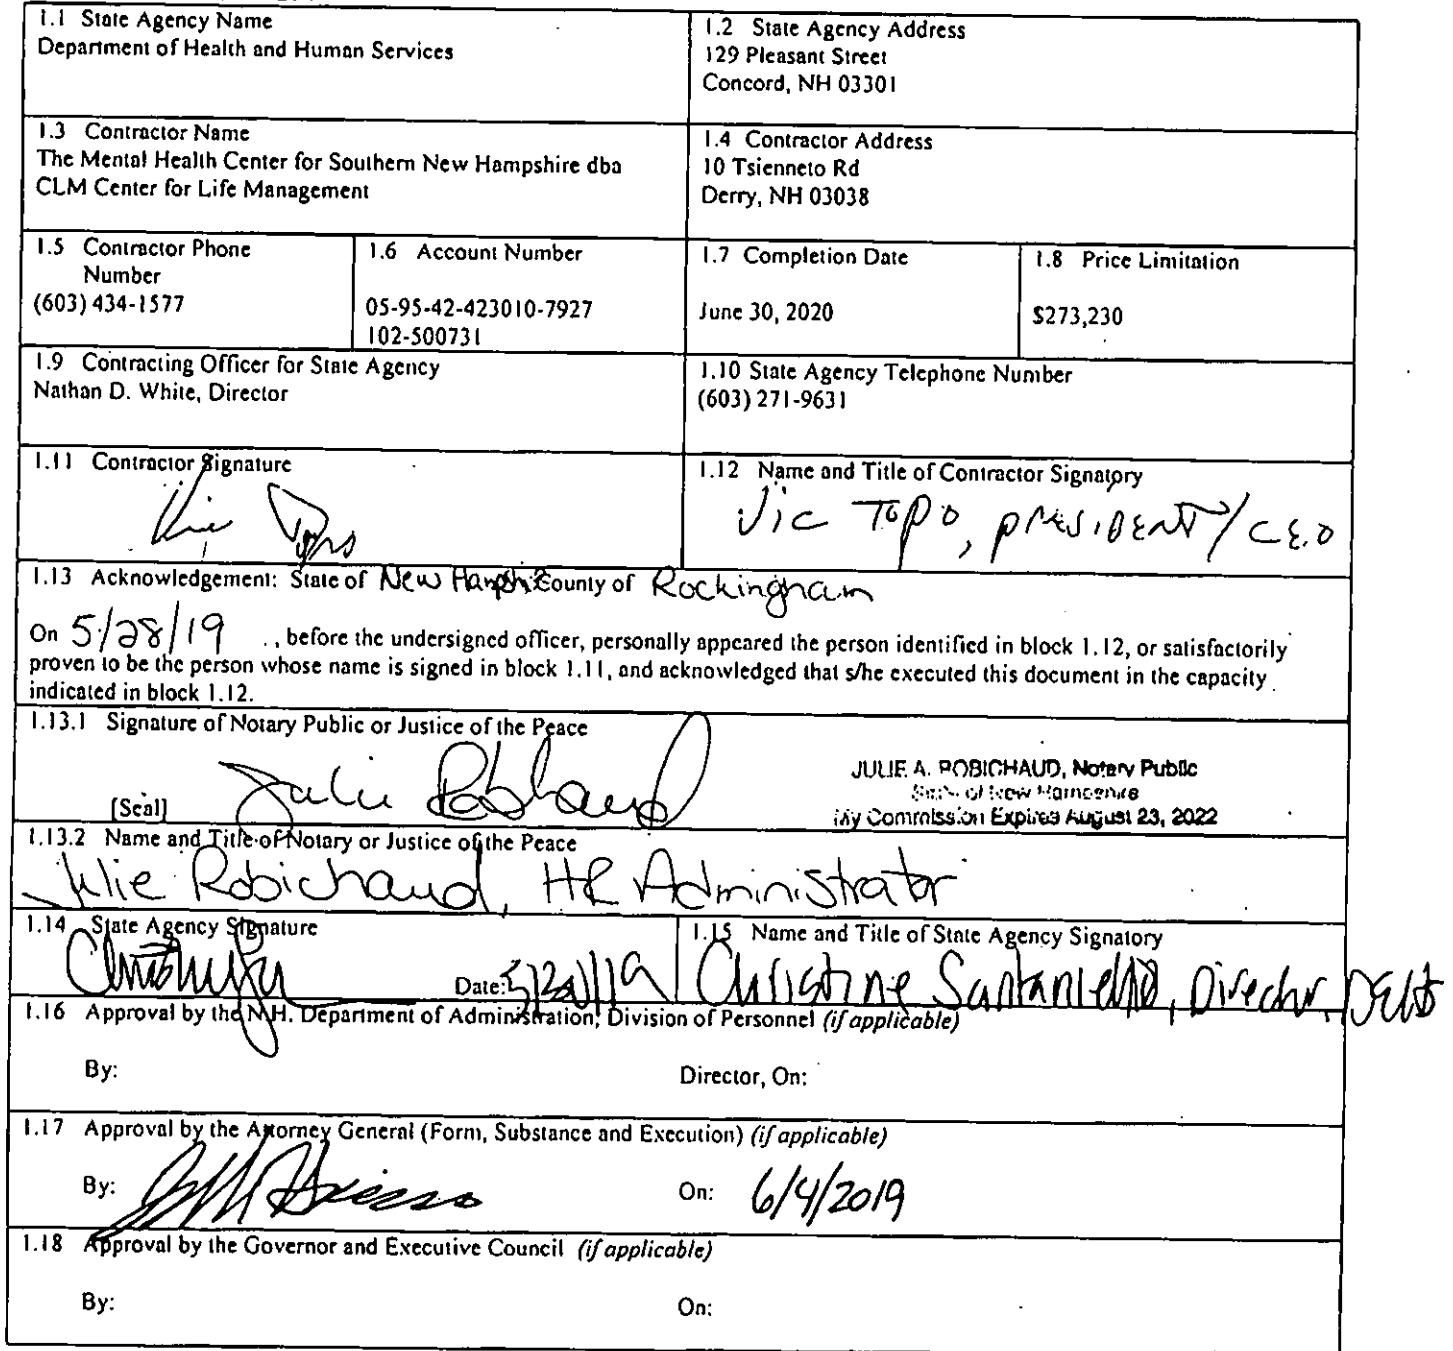 1.1 State Agency Name
Department of Health and Human Services
1.2 State Agency Address
129 Pleasant Street
Concord, NH 03301
1.3 Contractor Name
The Mental Health Center for Southern New Hampshire dba
CLM Center for Life Management
1.4 Contractor Address
10 Tsienneto Rd
Derry, NH 03038
1.5 Contractor Phone
Number
(603) 434-1577
1.6 Account Number
05-95-42-423010-7927
102-500731
1.7 Completion Date
June 30, 2020
1.8 Price Limitation
$273,230
1.9 Contracting Officer for State Agency
Nathan D. White, Director
1.10 State Agency Telephone Number
(603) 271-9631
1.11 Contractor Signature
Vic Topo
1.12 Name and Title of Contractor Signatory
Vic Topo, President/CEO
1.13 Acknowledgement: State of New Hampshire County of Rockingham
On 5/28/19 ., before the undersigned officer, personally appeared the person identified in block 1.12, or satisfactorily
proven to be the person whose name is signed in block 1.11, and acknowledged that s/he executed this document in the capacity
indicated in block 1.12.
1.13.1 Signature of Notary Public or Justice of the Peace
Julie Robichaud
[Seal]
JULIE A. ROBICHAUD, Notary Public
State of New Hampshire
My Commission Expires August 23, 2022
1.13.2 Name and Title of Notary or Justice of the Peace
Julie Robichaud, HR Administrator
1.14 State Agency Signature
Date:
1.15 Name and Title of State Agency Signatory
Christine Santaniello, Director,
1.16 Approval by the N.H. Department of Administration, Division of Personnel (if applicable)
By:
Director, On:
1.17 Approval by the Attorney General (Form, Substance and Execution) (if applicable)
By:
On: 6/4/2019
1.18 Approval by the Governor and Executive Council (if applicable)
By:
On: